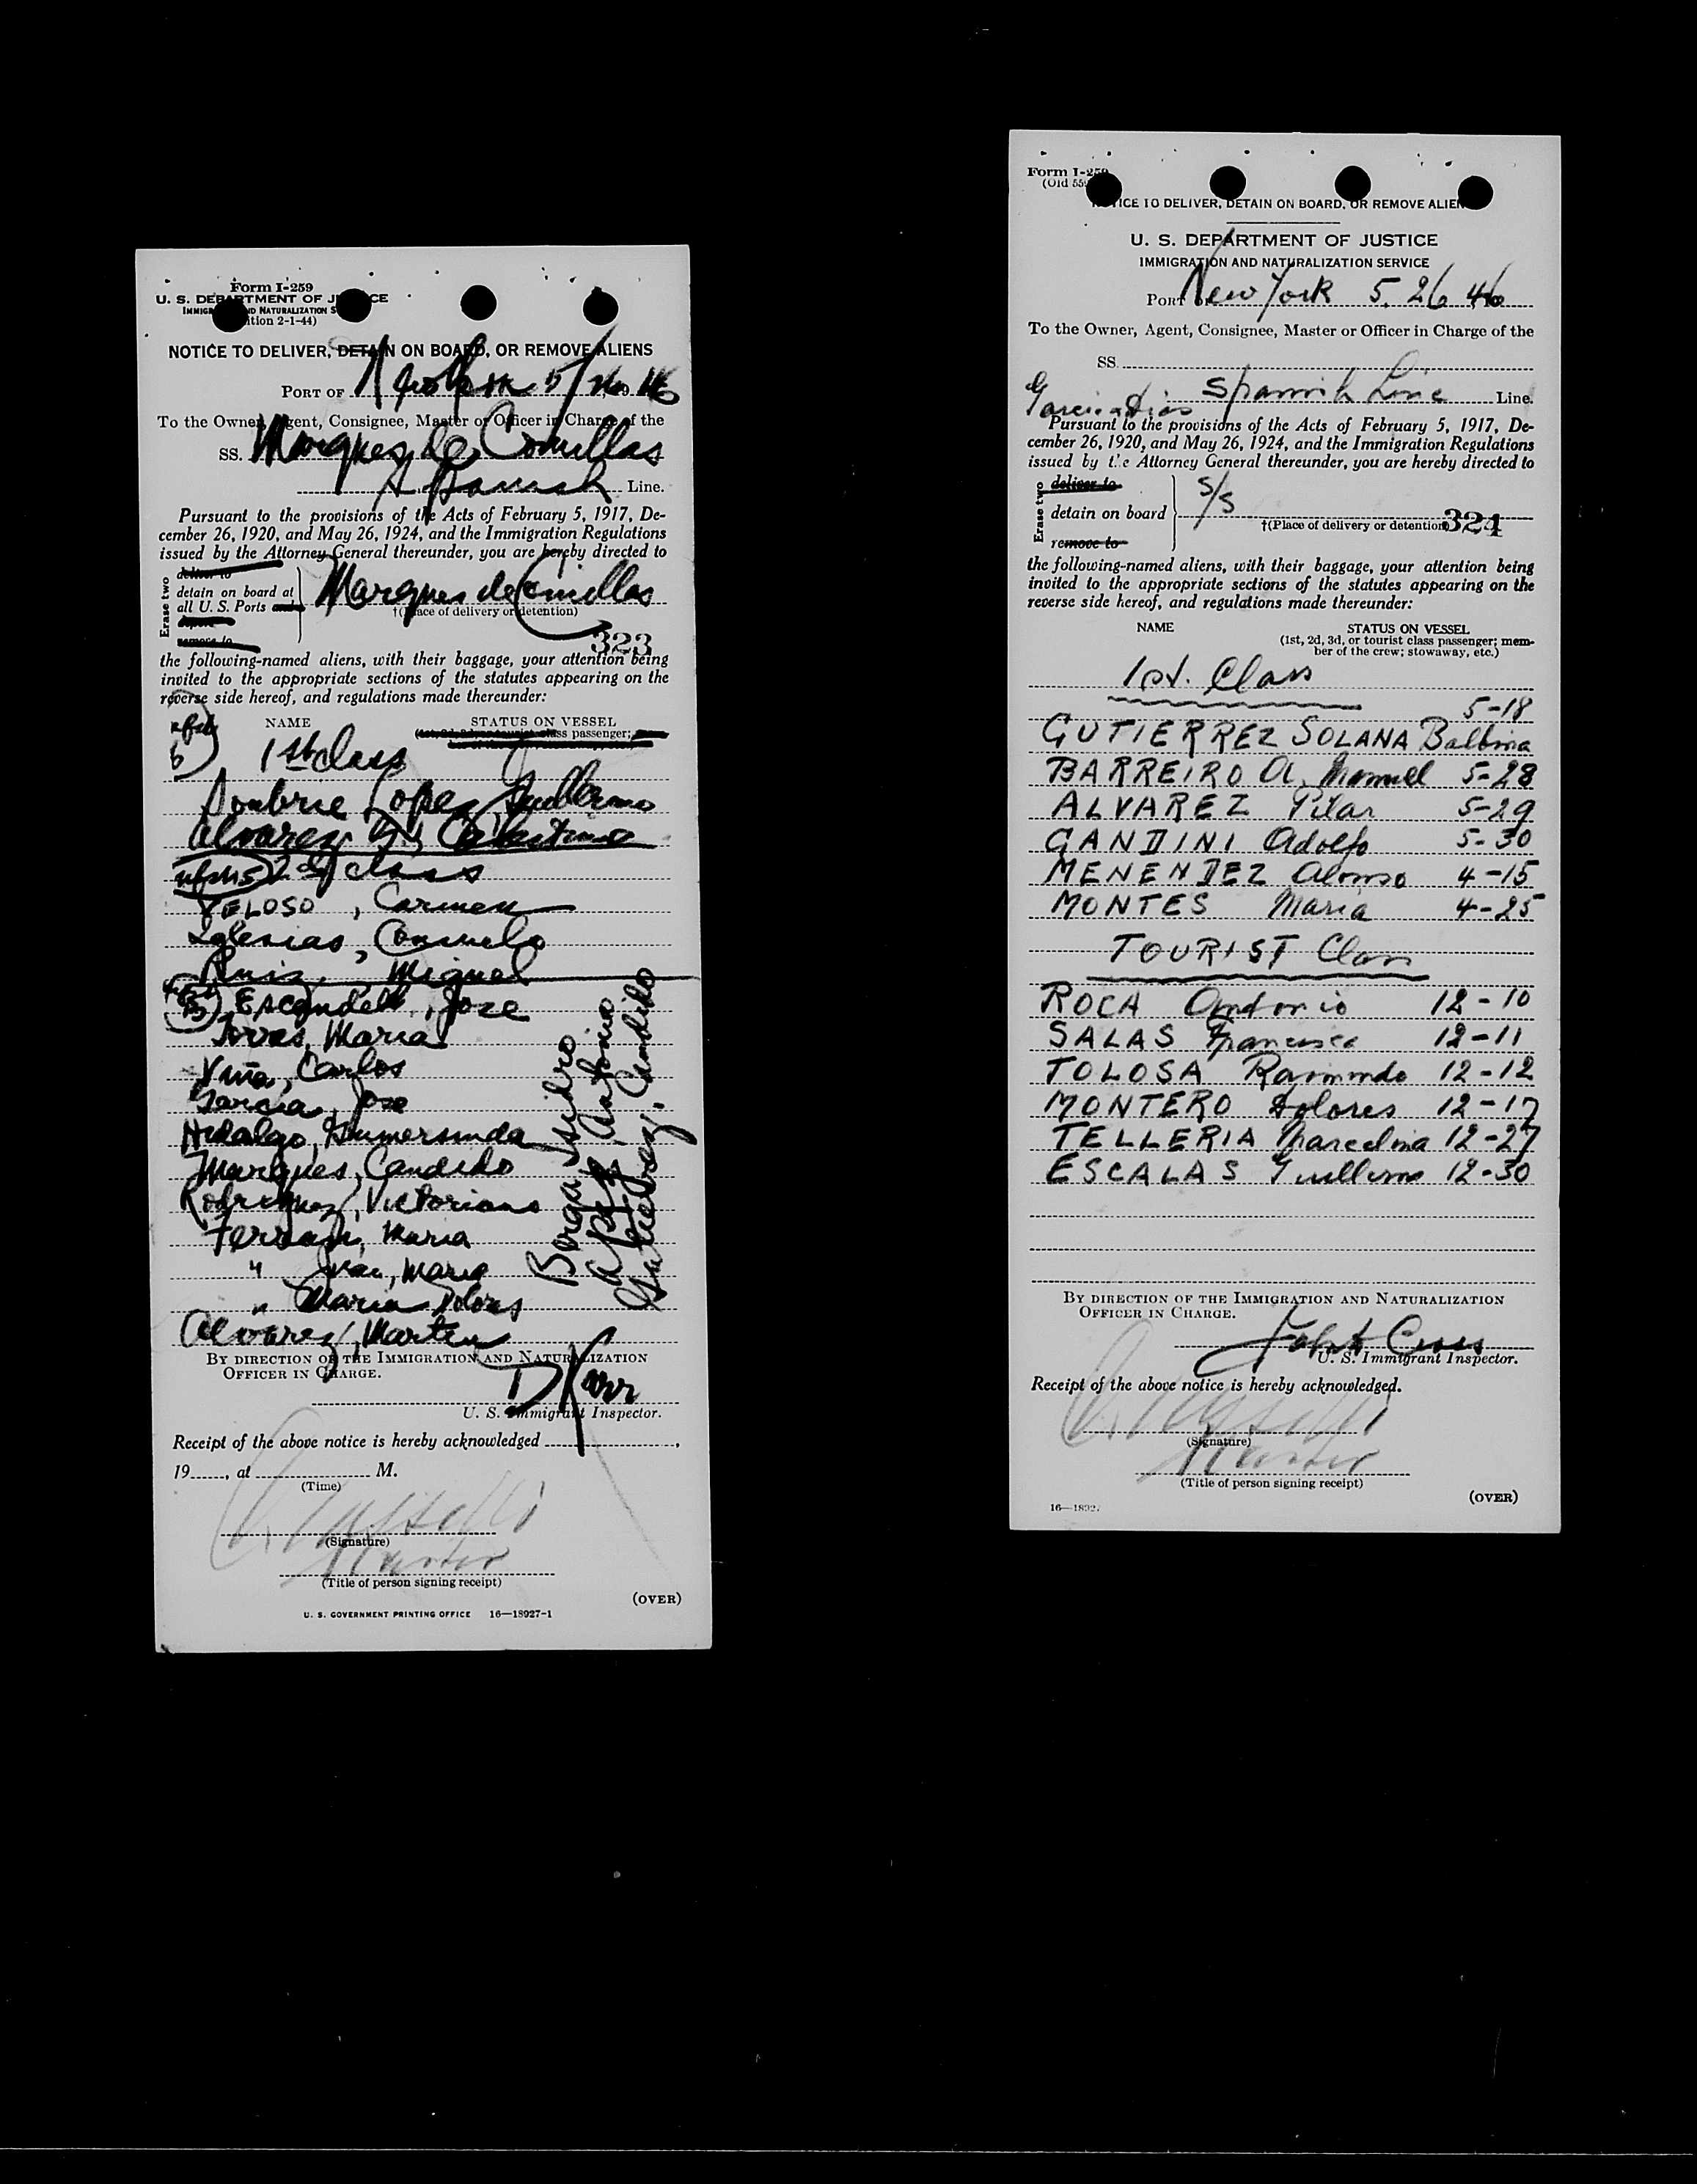 Form I-259
U. S. DEPARTMENT OF JUSTICE
IMMIGRATION AND NATURALIZATION S
ition 2-1-44)
NOTICE TO DELIVER, DETAIN ON BOARD, OR REMOVE ALIENS
PORT OF New York 5/26 1946
To the Owner, Agent, Consignee, Master or Officer in Charge of the
SS. Marques de Comillas
Spanish Line.
Pursuant to the provisions of the Acts of February 5, 1917, De-
cember 26, 1920, and May 26, 1924, and the Immigration Regulations
issued by the Attorney General thereunder, you are hereby directed to
Erase two
deliver to
detain on board at
all U. S. Ports and
remove to
Marques de Comillas
†(Place of delivery or detention)
323
the following-named aliens, with their baggage, your attention being
invited to the appropriate sections of the statutes appearing on the
reverse side hereof, and regulations made thereunder:
NAME STATUS ON VESSEL
class passenger;
6
1st class
Lopez, Guillermo
Alvarez Celestino
2d class
VELOSO, Carmen
Iglesias, Consuelo
Ruiz, Miguel
Escandell, Jose
Torres, Maria
Viña, Carlos
Garcia, Jose
Hidalgo, Gumersinda
Marques, Candido
Rodriguez, Victoriano
Ferran, Maria
" Juan, Maria
" Maria Dolors
Alvarez, Martin
Borga Isidro
Antonio
Gutierrez, Candido
BY DIRECTION OF THE IMMIGRATION AND NATURALIZATION
OFFICER IN CHARGE.
D Karr
U. S. Immigrant Inspector.
Receipt of the above notice is hereby acknowledged
19, at M.
(Time)
(Signature)
Master
(Title of person signing receipt)
(OVER)
U. S. GOVERNMENT PRINTING OFFICE 16—18927-1
Form I-259
(Old 55
NOTICE TO DELIVER, DETAIN ON BOARD, OR REMOVE ALIEN
U. S. DEPARTMENT OF JUSTICE
IMMIGRATION AND NATURALIZATION SERVICE
PORT New York 5. 26 46
To the Owner, Agent, Consignee, Master or Officer in Charge of the
SS.
Garcia & Dias Spanish Line Line.
Pursuant to the provisions of the Acts of February 5, 1917, De-
cember 26, 1920, and May 26, 1924, and the Immigration Regulations
issued by the Attorney General thereunder, you are hereby directed to
Erase two
deliver to
detain on board
remove to
S/S
†(Place of delivery or detention)
324
the following-named aliens, with their baggage, your attention being
invited to the appropriate sections of the statutes appearing on the
reverse side hereof, and regulations made thereunder:
NAME STATUS ON VESSEL
(1st, 2d, 3d, or tourist class passenger; mem-
ber of the crew; stowaway, etc.)
1st. Class
5-18
GUTIERREZ SOLANA Balbina
BARREIRO A. Manuel 5-28
ALVAREZ Pilar 5-29
GANDINI Adolfo 5-30
MENENDEZ Alonso 4-15
MONTES Maria 4-25
TOURIST Class
ROCA Antonio 12-10
SALAS Francisca 12-11
TOLOSA Raimundo 12-12
MONTERO Dolores 12-17
TELLERIA Marcelina 12-27
ESCALAS Guillermo 12-30
BY DIRECTION OF THE IMMIGRATION AND NATURALIZATION
OFFICER IN CHARGE.
U. S. Immigrant Inspector.
Receipt of the above notice is hereby acknowledged.
(Signature)
Master
(Title of person signing receipt)
(OVER)
16—1892